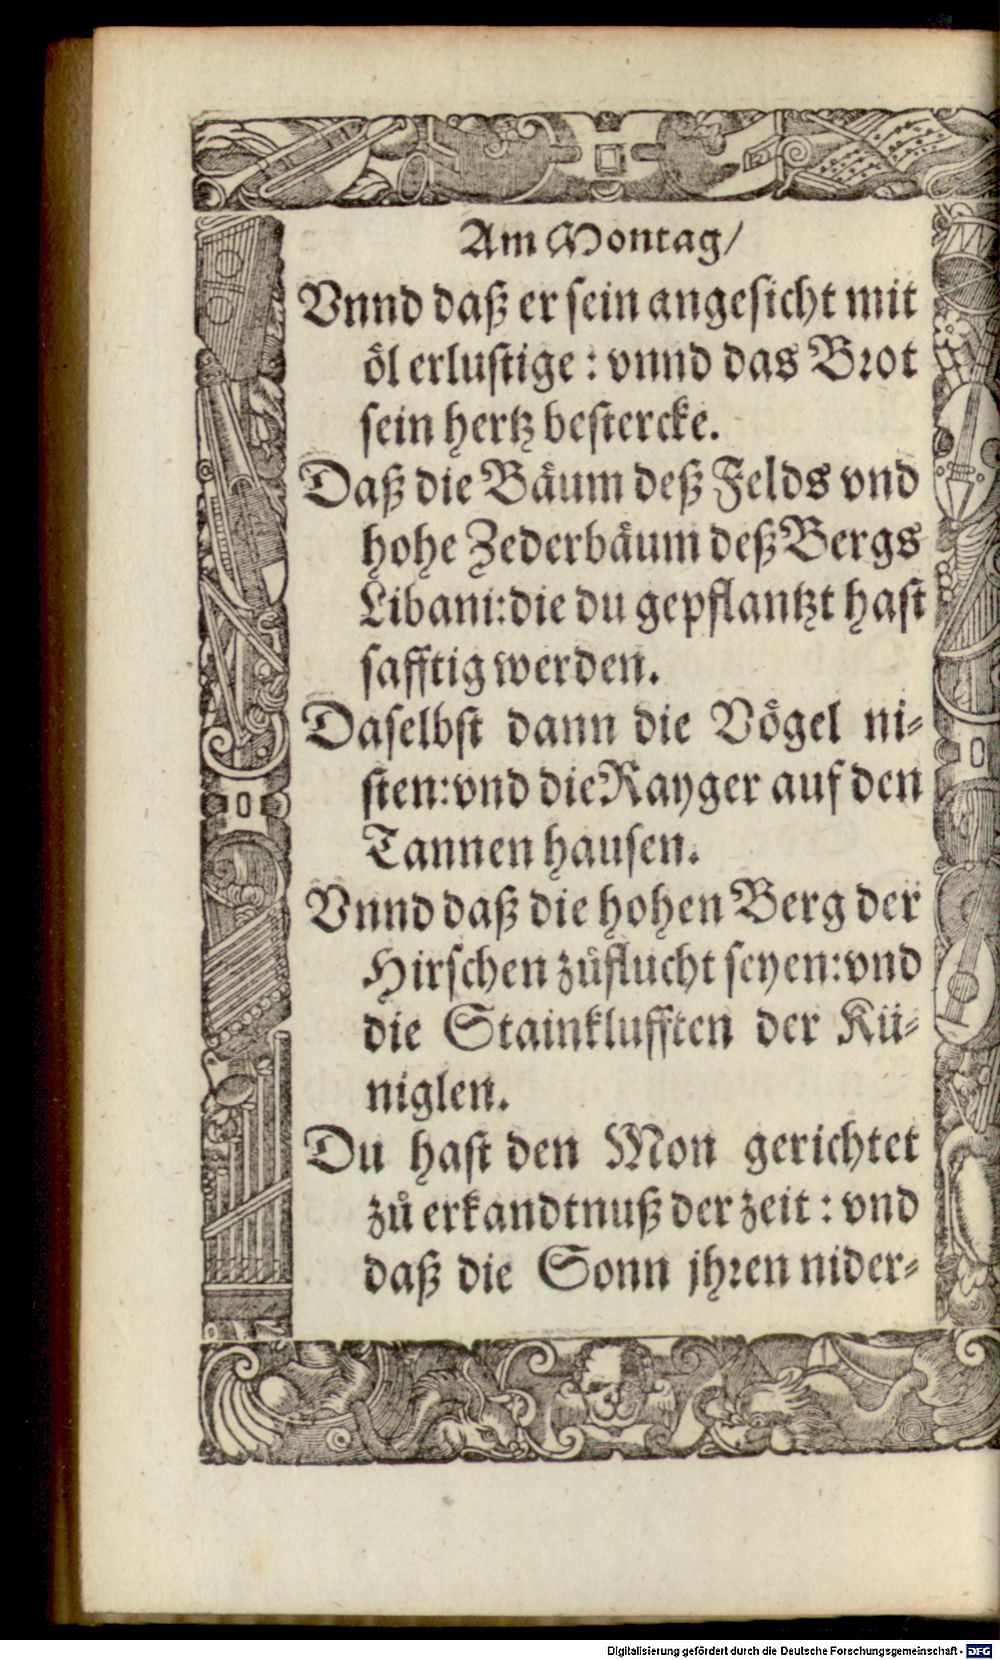 Am Montag/
Vnnd daß er sein angesicht mit
öl erlustige: vnnd das Brot
sein hertz bestercke.
Daß die Bäum deß Felds vnd
hohe Zederbäum deß Bergs
Libani: die du gepflantzt hast
safftig werden.
Daselbst dann die Vögel ni-
sten: vnd die Rayger auf den
Tannen hausen.
Vnnd daß die hohen Berg der
Hirschen zůflucht seyen: vnd
die Stainklufften der Kü-
niglen.
Du hast den Mon gerichtet
zů erkandtnuß der zeit: vnd
daß die Sonn jhren nider-
Digitalisierung gefördert durch die Deutsche Forschungsgemeinschaft - DFG